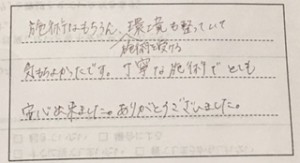 施術はもちろん、環境も整っていて
施術を受ける
気もちよかったです。丁寧な施術でとても
安心出来ました。ありがとうございました。